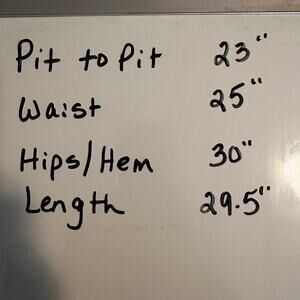 Pit to Pit 23"
Waist 25"
Hips/Hem 30"
Length 29.5"